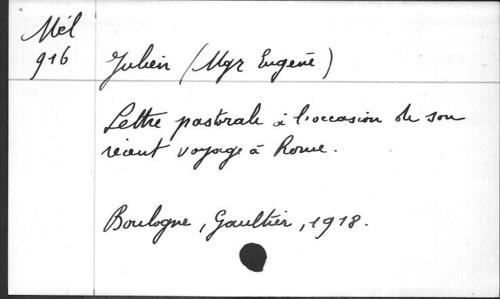 Mél
916
Julien (Mgr Eugène)
Lettre pastorale à l'occasion de son
récent voyage à Rome.
Boulogne, Gaultier, 1918.